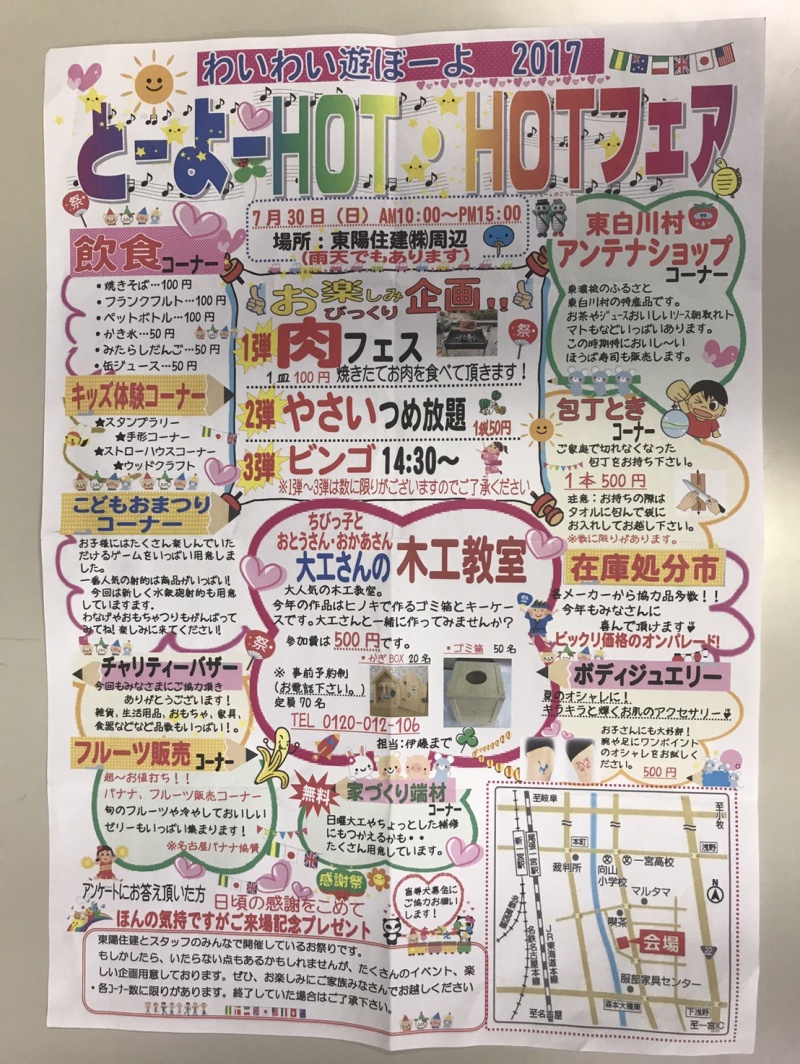 わいわい遊ぼーよ　2017
とーよーHOT・HOTフェア
祭
7月30日（日）AM10:00～PM15:00
場所：東陽住建㈱周辺
（雨天でもあります）
飲食コーナー
・焼きそば…100円
・フランクフルト…100円
・ペットボトル…100円
・かき氷…50円
・みたらしだんご…50円
・缶ジュース…50円
キッズ体験コーナー
★スタンプラリー
★手形コーナー
★ストローハウスコーナー
★ウッドクラフト
こどもおまつり
コーナー
お子様にはたくさん楽しんでいた
だけるゲームをいっぱい用意しま
した。
一番人気の射的は商品がいっぱい!
今回は新しく水鉄砲射的も用意
していますます。
わなげやおもちゃつりもがんばって
みてね!楽しみに来てください!
チャリティーバザー
今回もみなさまにご協力頂き
ありがとうございます!
雑貨、生活用品、おもちゃ、家具、
食器などなど品数もいっぱい!。
フルーツ販売コーナー
超～お値打ち!!
バナナ、フルーツ販売コーナー
旬のフルーツや冷やしておいしい
ゼリーもいっぱい集まります!
※名古屋バナナ協賛
お楽しみ
びっくり
企画!!
祭
1弾 肉フェス
1皿100円 焼きたてお肉を食べて頂きます!
2弾 やさいつめ放題 1袋50円
3弾 ビンゴ 14:30～
※1弾～3弾は数に限りがございますのでご了承ください
ちびっ子と
おとうさん・おかあさん
大工さんの 木工教室
大人気の木工教室。
今年の作品はヒノキで作るゴミ箱とキーケー
スです。大工さんと一緒に作ってみませんか?
参加費は500円です。
祭
・かぎBOX 20名
・ゴミ箱 50名
※ 事前予約制
（お電話下さい。）
定員70名
TEL 0120-012-106
担当:伊藤まで
無料
家づくり端材
コーナー
日曜大工やちょっとした補修
にもつかえるかも・・
たくさん用意しています。
東白川村
アンテナショップ
コーナー
東濃桧のふるさと
東白川村の特産品です。
お茶やジュースおいしいソース朝取れト
マトもなどいっぱいあります。
この時期特においし～い
ほうば寿司も販売します。
包丁とぎ
コーナー
ご家庭で切れなくなった
包丁をお持ち下さい。
1本500円
注意：お持ちの際は
タオルに包んで袋に
お入れしてお越し下さい。
※数に限りがあります。
在庫処分市
各メーカーから協力品多数!!
今年もみなさんに
喜んで頂けます
ビックリ価格のオンパレード!
祭
ボディジュエリー
夏のオシャレに!
キラキラと輝くお肌のアクセサリー
お子さんにも大好評!
腕や足にワンポイント
のオシャレをお試しく
ださい。
500円
アンケートにお答え頂いた方
感謝祭
日頃の感謝をこめて
ほんの気持ですがご来場記念プレゼント
盲導犬募金に
ご協力お願い
します!
東陽住建とスタッフのみんなで開催しているお祭りです。
もしかしたら、いたらない点もあるかもしれませんが、たくさんのイベント、楽
しい企画用意しております。ぜひ、お楽しみにご家族みなさんでお越しください
・各コーナー数に限りがあります。終了していた場合はご了承下さい。
至一岐阜
至小牧
新一宮駅
尾張一宮駅
本町
浅野
裁判所
向山
小学校
一宮高校
マルタマ
N
喫茶
会場
22
名鉄名古屋本線
JR東海道本線
服部家具センター
森本大橋東
下浅野
至一名古屋
至一宮IC